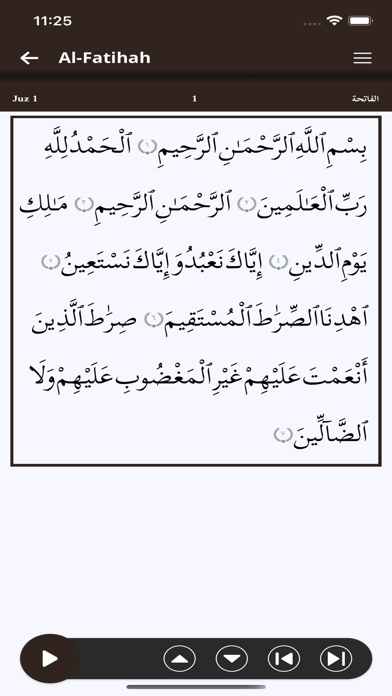 11:25
Al-Fatihah
Juz 1 1 الفاتحة
بِسْمِ ٱللَّهِ ٱلرَّحْمَـٰنِ ٱلرَّحِيمِ ١ ٱلْحَمْدُ لِلَّهِ
رَبِّ ٱلْعَـٰلَمِينَ ٢ ٱلرَّحْمَـٰنِ ٱلرَّحِيمِ ٣ مَـٰلِكِ
يَوْمِ ٱلدِّينِ ٤ إِيَّاكَ نَعْبُدُ وَإِيَّاكَ نَسْتَعِينُ ٥
ٱهْدِنَا ٱلصِّرَٰطَ ٱلْمُسْتَقِيمَ ٦ صِرَٰطَ ٱلَّذِينَ
أَنْعَمْتَ عَلَيْهِمْ غَيْرِ ٱلْمَغْضُوبِ عَلَيْهِمْ وَلَا
ٱلضَّآلِّينَ ٧